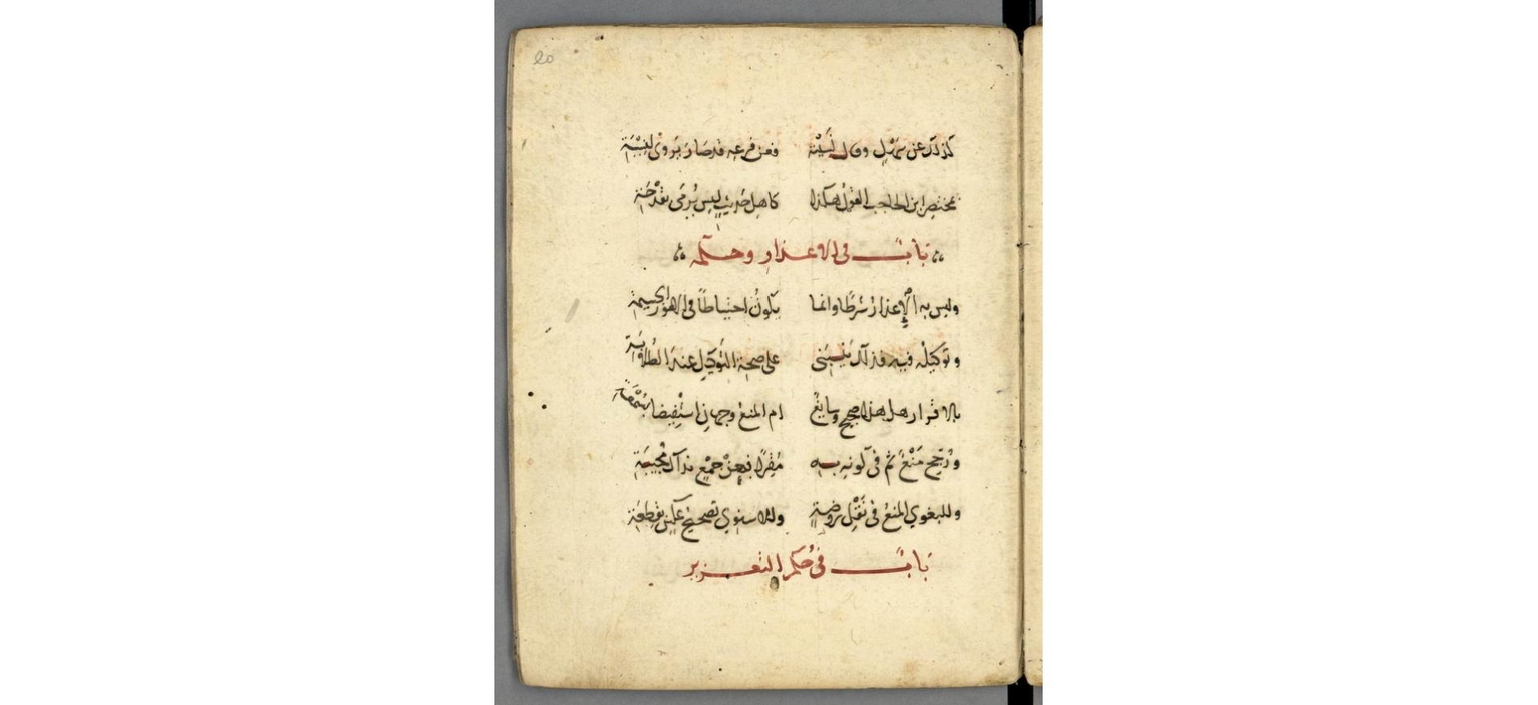 كذلك عن سهل وقال لبينة فعن فرعه قد صار يروى لبينة
مختصر ابن الحاجب القول هكذا كأهل حديث ليس يرمى بقدحة
باب في الاعذار وحكمه
وليس به الإعذار شرطًا وانما يكون احتياطًا في الامور
وتوكيله فيه فذاك ينبنى على صحة التوكيل عند
بالاقرار هل هذا صحيح وسايغ ام المنع وجهان
ورجح منع ثم في كونه به مقرا فعن جمع بذاك
وللبغوي المنع في نقل روضة وللاسنوي تصحيح عكس بقطعة
باب في حكم التعزير